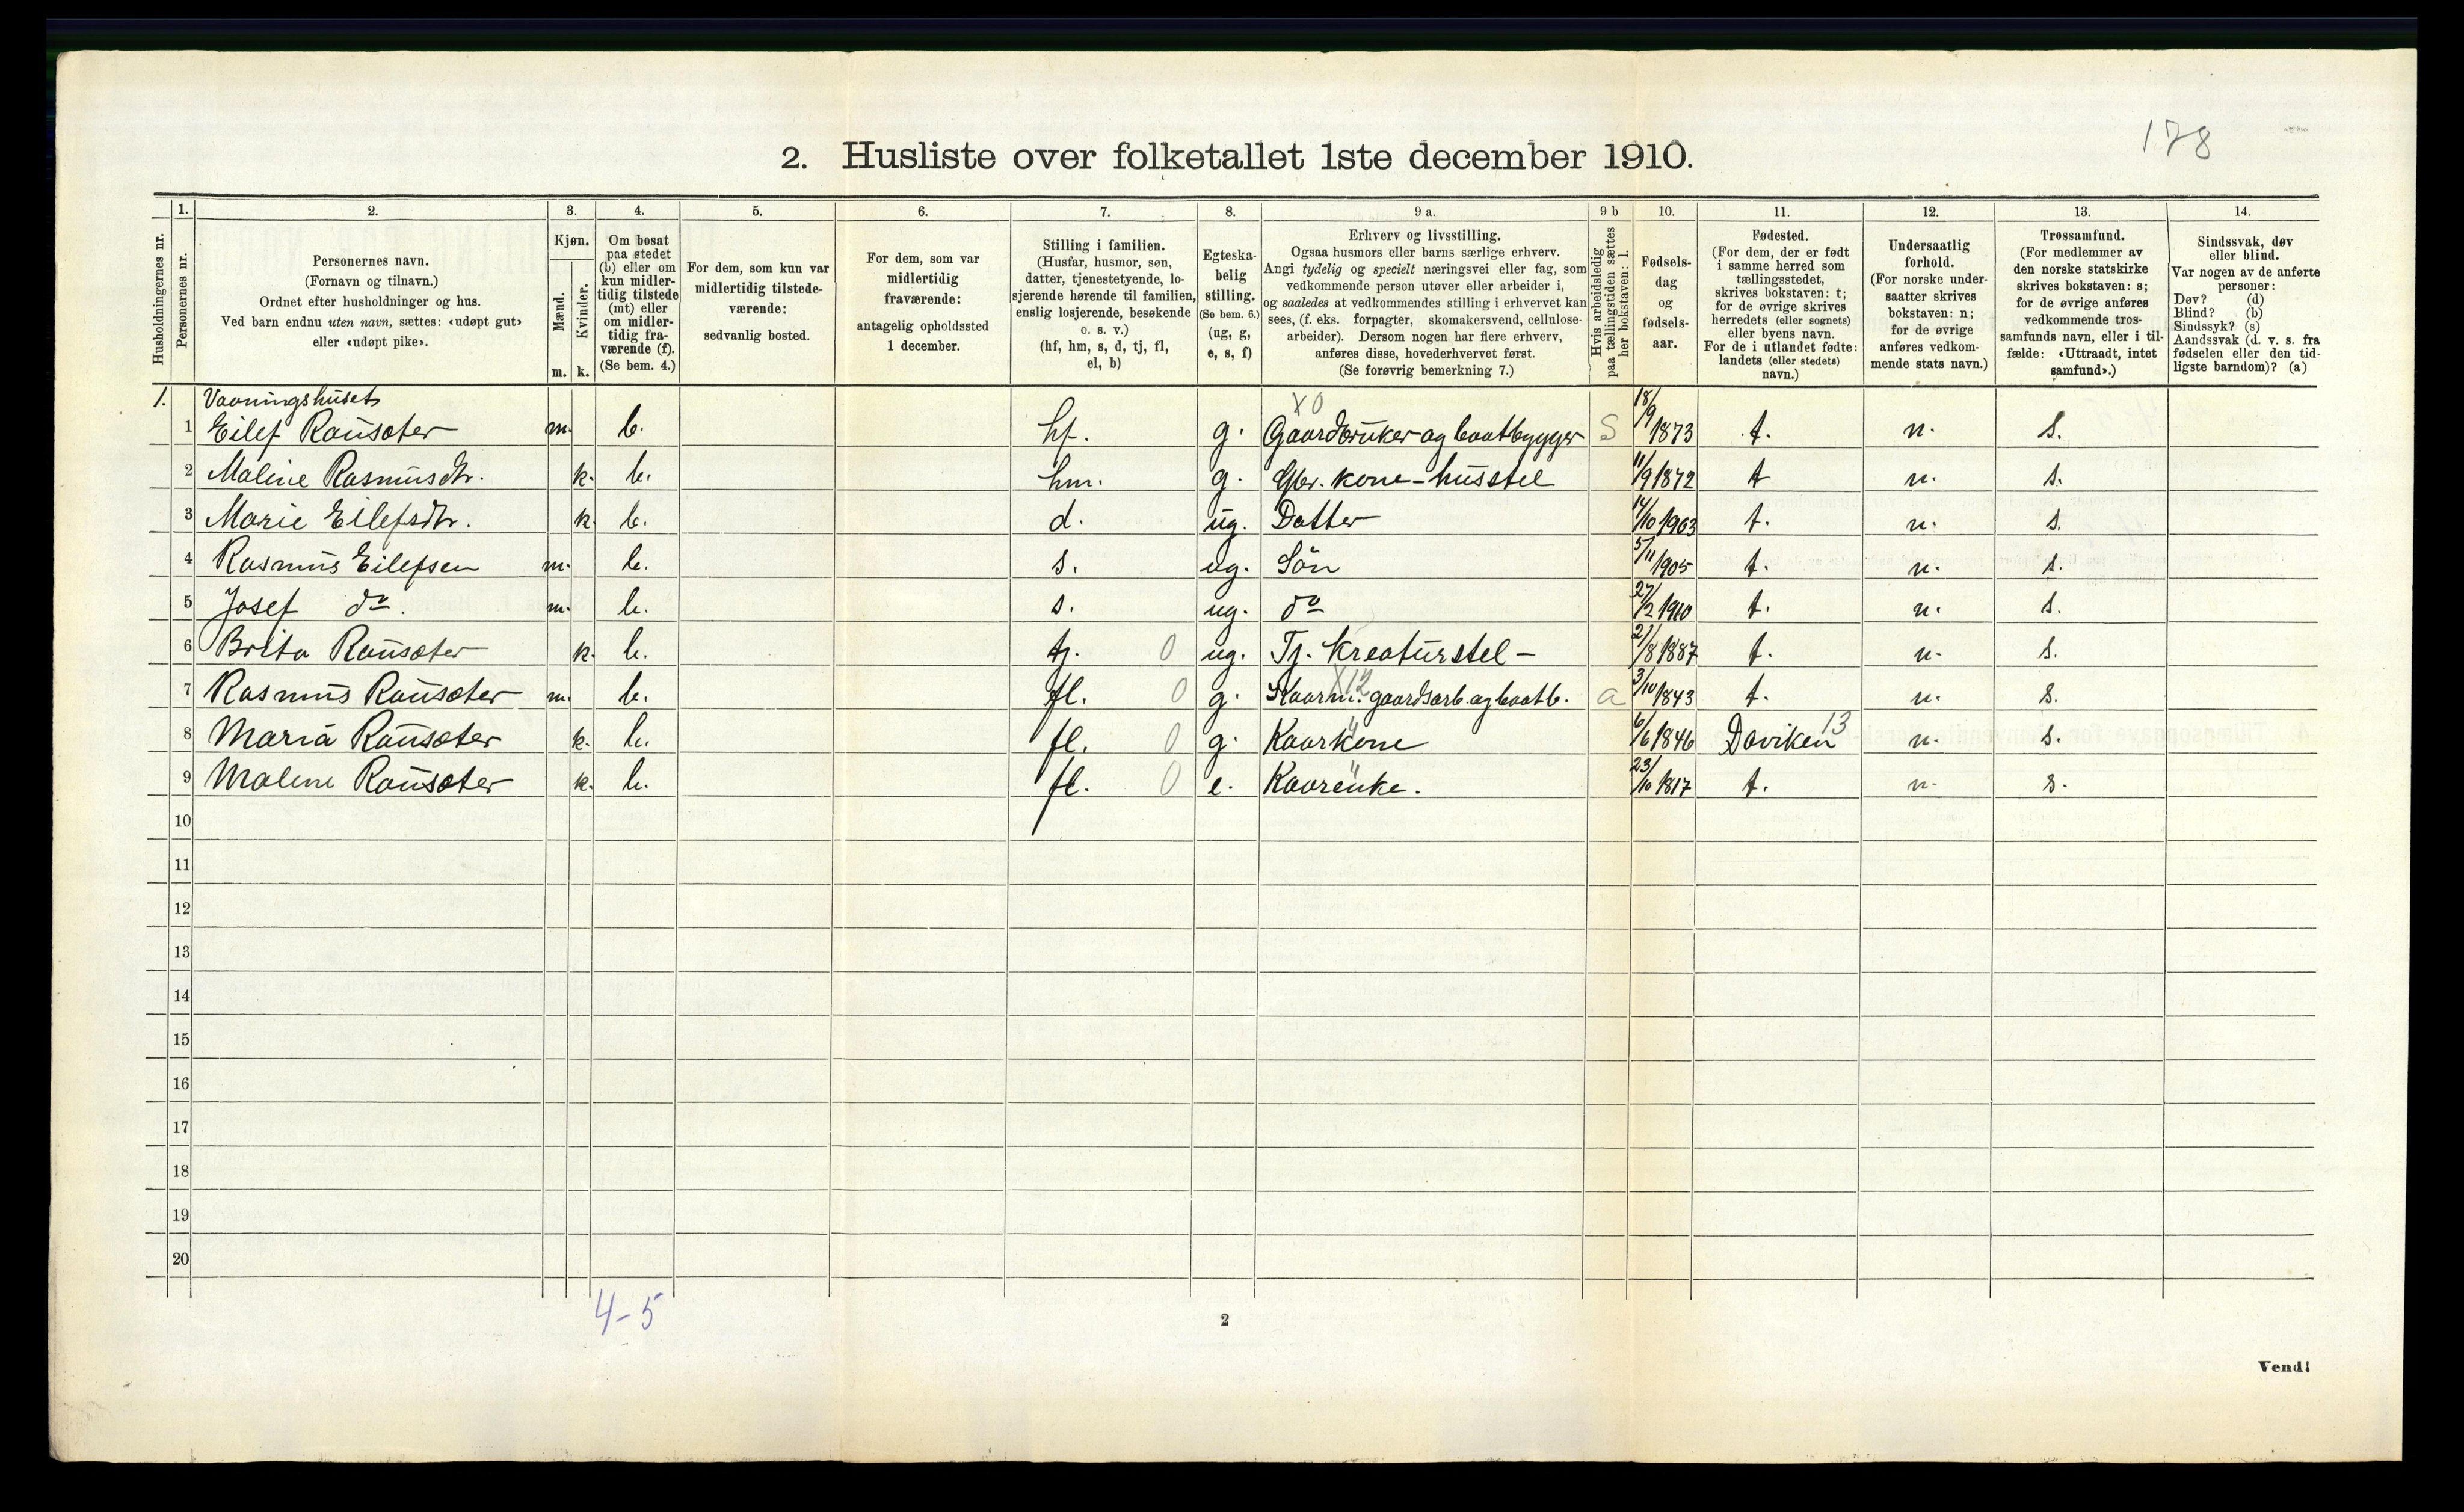 178
2. Husliste over folketallet 1ste december 1910.
Husholdningernes nr.
1.
Personernes nr.
2.
Personernes navn.
(Fornavn og tilnavn.)
Ordnet efter husholdninger og hus.
Ved barn endnu uten navn, sættes: «udøpt gut»
eller «udøpt pike».
3.
Kjøn.
Mænd.
Kvinder.
m. k.
4.
Om bosat
paa stedet
(b) eller om
kun midler-
tidig tilstede
(mt) eller
om midler-
tidig fra-
værende (f).
(Se bem. 4.)
5.
For dem, som kun var
midlertidig tilstede-
værende:
sedvanlig bosted.
6.
For dem, som var
midlertidig
fraværende:
antagelig opholdssted
1 december.
7.
Stilling i familien.
(Husfar, husmor, søn,
datter, tjenestetyende, lo-
sjerende hørende til familien,
enslig losjerende, besøkende
o. s. v.)
(hf, hm, s, d, tj, fl,
el, b)
8.
Egteska-
belig
stilling.
(Se bem. 6.)
(ug, g,
e, s, f)
9 a.
Erhverv og livsstilling.
Ogsaa husmors eller barns særlige erhverv.
Angi tydelig og specielt næringsvei eller fag, som
vedkommende person utøver eller arbeider i,
og saaledes at vedkommendes stilling i erhvervet kan
sees, (f. eks. forpagter, skomakersvend, cellulose-
arbeider). Dersom nogen har flere erhverv,
anføres disse, hovederhvervet først.
(Se forøvrig bemerkning 7.)
9 b
Hvis arbeidsledig
paa tællingstiden sættes
her bokstaven: l.
10.
Fødsels-
dag
og
fødsels-
aar.
11.
Fødested.
(For dem, der er født
i samme herred som
tællingsstedet,
skrives bokstaven: t;
for de øvrige skrives
herredets (eller sognets)
eller byens navn.
For de i utlandet fødte:
landets (eller stedets)
navn.)
12.
Undersaatlig
forhold.
(For norske under-
saatter skrives
bokstaven: n;
for de øvrige
anføres vedkom-
mende stats navn.)
13.
Trossamfund.
(For medlemmer av
den norske statskirke
skrives bokstaven: s;
for de øvrige anføres
vedkommende tros-
samfunds navn, eller i til-
fælde: «Uttraadt, intet
samfund».)
14.
Sindssvak, døv
eller blind.
Var nogen av de anførte
personer:
Døv? (d)
Blind? (b)
Sindssyk? (s)
Aandssvak (d. v. s. fra
fødselen eller den tid-
ligste barndom)? (a)
1. Vaaningshuset X0
1 Eilef Rausæter m. b. hf. g. Gaardbruker og baatbygger S 18/9 1873 t. n. s.
2 Maline Rasmusdtr. k. b. hm. g. Gbr. kone - husstel 11/9 1872 t n. s.
3 Marie Eilefsdtr. k. b. d. ug. Datter 14/10 1903 t. n. s.
4 Rasmus Eilefsen m. b. s. ug. Sön 5/11 1905 t. n. s.
5 Josef do. m. b. s. ug. do 27/2 1910 t. n. s.
6 Brita Rausæter k. b. tj. 0 ug. Tj. Kreaturstel - 21/8 1887 t. n. s.
7 Rasmus Rausæter m. b. fl. 0 g. Kaarm. gaardsarb. og baatb. X12 a 3/10 1843 t. n. s.
8 Maria Rausæter k. b. fl. 0 g. Kaarkone " 6/6 1846 Daviken 13 n. s.
9 Malene Rausæter k. b. fl. 0 e. Kaarenke. " 23/10 1817 t. n. s.
10
11
12
13
14
15
16
17
18
19
20
4-5
2
Vend!